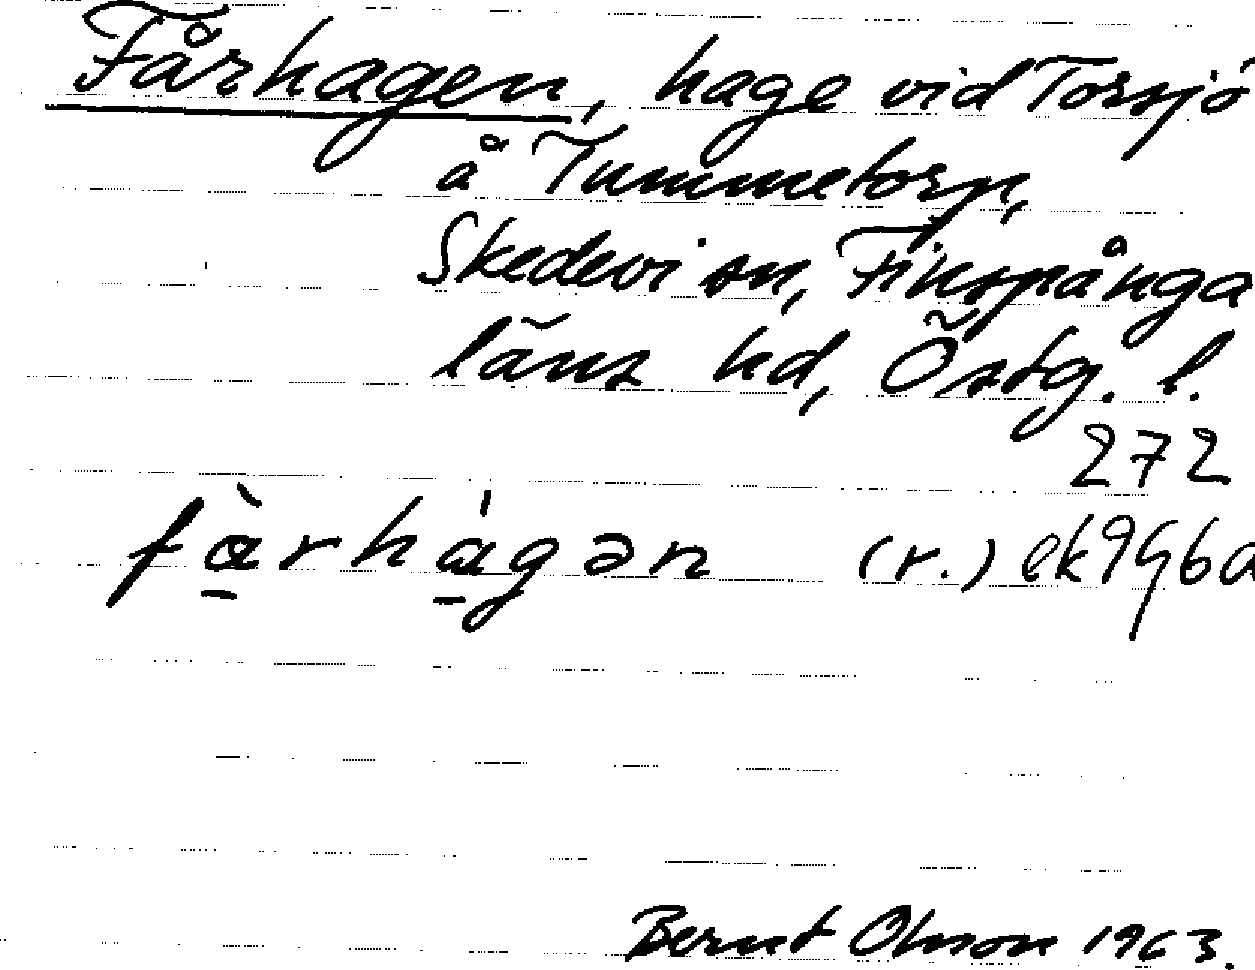 Fårhagen, hage vid Torsjö
å Tummetorp,
Skedevi sn, Finspånga
läns hd, Östg. l.
272
fàrhágən (r.) ek 9G6a
Bernt Olsson 1963.